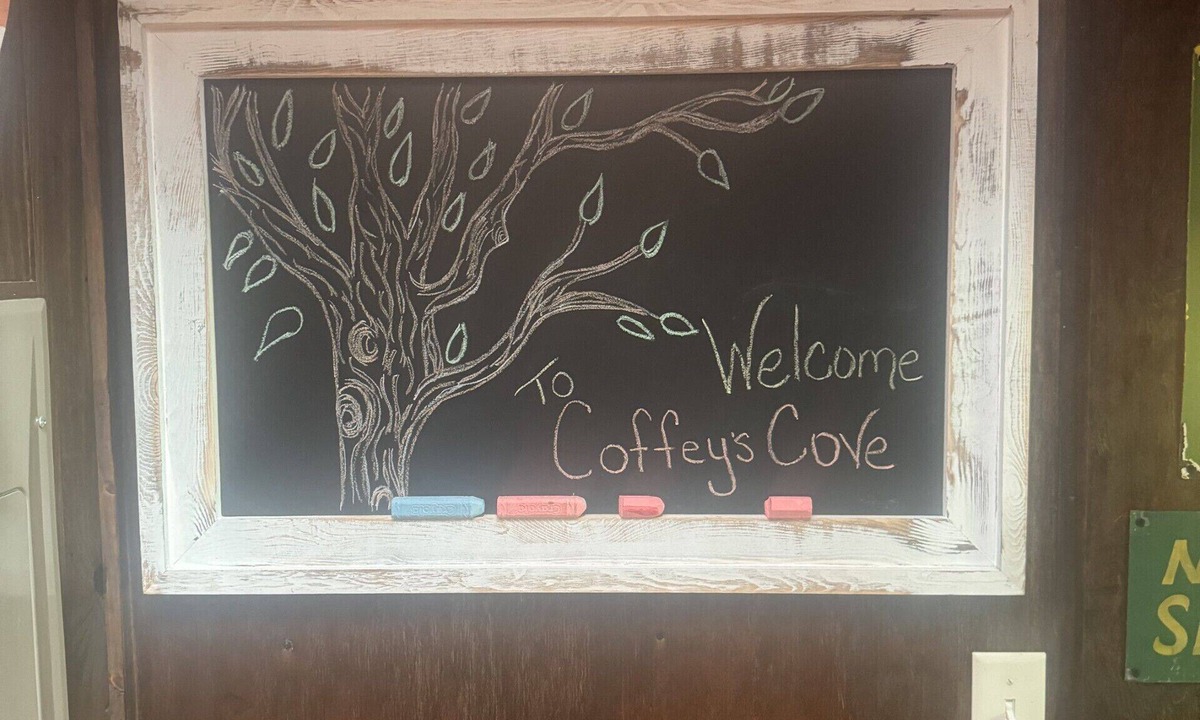 Welcome
To
Coffey's Cove
CRAYOLA